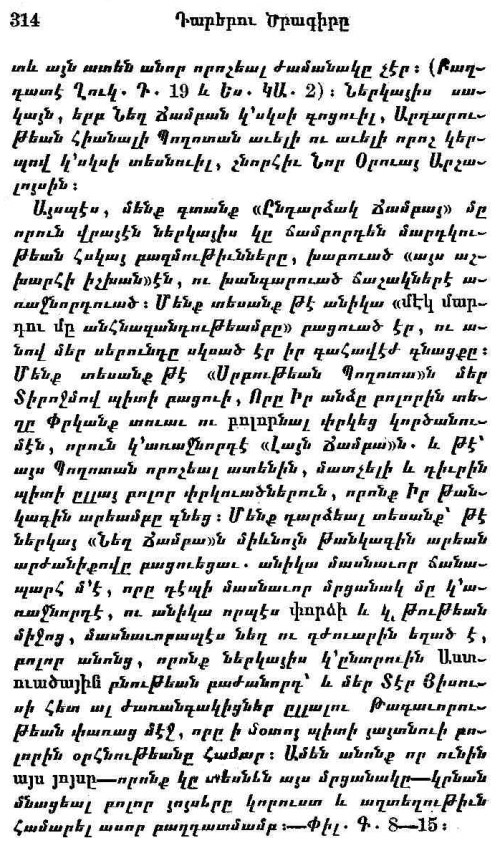 314 Դարերու Ծրագիրը
տև այն ատեն անոր որոշեալ ժամանակը չէր։ (Բաղ-
դատէ Ղուկ. Դ. 19 և Ես. ԿԱ. 2)։ Ներկայիս սա-
կայն, երբ Նեղ Ճամբան կ՚սկսի գոցուիլ, Արդարու-
թեան Հիանալի Պողոտան աւելի ու աւելի որոշ կեր-
պով կ՚սկսի տեսնուիլ, շնորհիւ Նոր Օրուայ Արշա-
լոյսին։
Այսպէս, մենք գտանք «Ընդարձակ Ճամբայ» մը
որուն վրայէն ներկայիս կը ճամբորդեն մարդկու-
թեան հսկայ բազմութիւնները, խաբուած «այս աշ-
խարհի իշխան»էն, ու խանգարուած ճաշակներէ ա-
ռաջնորդուած։ Մենք տեսանք թէ անիկա «մէկ մար-
դու մը անհնազանդութեամբը» բացուած էր, ու ա-
նով մեր սերունդը սկսած էր իր գահավէժ գնացքը։
Մենք տեսանք թէ «Սրբութեան Պողոտա»ն մեր
Տիրոջմով պիտի բացուի, Որը Իր անձը բոլորին տե-
ղը Փրկանք տուաւ ու բոլորնալ փրկեց կործանու-
մէն, որուն կ՚առաջնորդէ «Լայն Ճամբա»ն. և թէ՝
այս Պողոտան որոշեալ ատենին, մատչելի և դիւրին
պիտի ըլլայ բոլոր փրկուածներուն, որոնք Իր թան-
կագին արեամբը գնեց։ Մենք դարձեալ տեսանք՝ թէ
ներկայ «Նեղ Ճամբա»ն միևնոյն թանկագին արեան
արժանիքովը բացուեցաւ. անիկա մասնաւոր ճանա-
պարհ մ՚է, որը դէպի մասնաւոր մրցանակ մը կ՚ա-
ռաջնորդէ, ու անիկա որպէս փորձի և կ թութեան
միջոց, մասնաւորապէս նեղ ու դժուարին եղած է,
բոլոր անոնց, որոնք ներկայիս կ՚ընտրուին Աստ-
ուածային բնութեան բաժանորդ՝ և մեր Տէր Յիսու-
սի Հետ ալ ժառանգակիցներ ըլլալու Թագաւորու-
թեան փառաց մէջ, որը ի մօտոյ պիտի յայտնուի բո-
լորին օրհնութեանը Համար։ Ամեն անոնք որ ունին
այս յոյսը—որոնք կը տեսնեն այս մրցանակը—կրնան
մնացեալ բոլոր յոյսերը կորուստ և աղտեղութիւն
Համարել ասոր բաղդատմամբ։—Փիլ. Գ. 8—15։